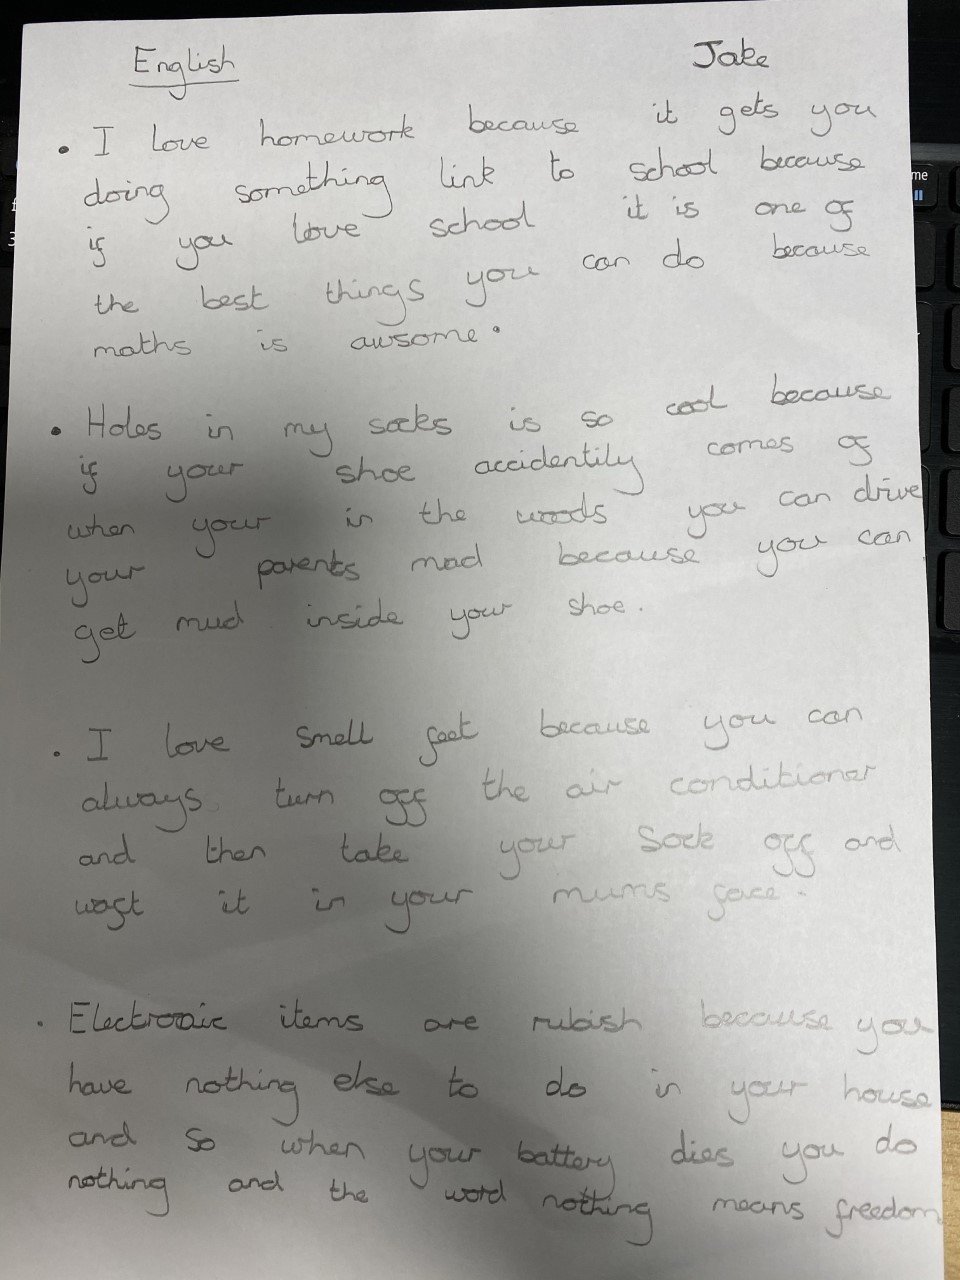 English Jake
• I love homework because it gets you
doing something link to school because
if you love school it is one of
the best things you can do because
maths is awsome.
• Holes in my socks is so cool because
if your shoe accidentily comes of
when your in the woods you can drive
your parents mad because you can
get mud inside your shoe.
• I love smell feet because you can
always turn off the air conditioner
and then take your sock off and
waft it in your mums face.
• Electronic items are rubish because you
have nothing else to do in your house
and so when your battery dies you do
nothing and the word nothing means freedom
me